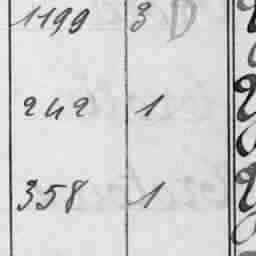 1199 3 D
242 1
358 1